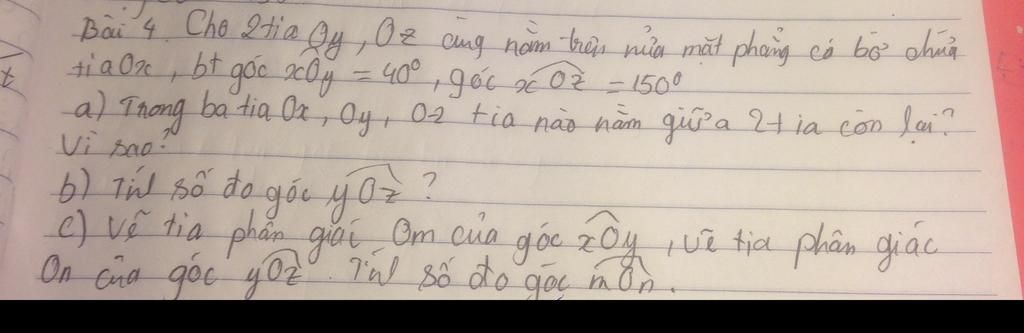 Bài 4. Cho 2 tia Oy, Oz cùng nằm trên nửa mặt phẳng có bờ chứa
tia Ox, bt góc xOy = 40°, góc xOz = 150°
a) Trong ba tia Ox, Oy, Oz tia nào nằm giữa 2 tia còn lại?
Vì sao?
b) Tính số đo góc yOz?
c) Vẽ tia phân giác Om của góc xOy, vẽ tia phân giác
On của góc yOz. Tính số đo góc mOn.